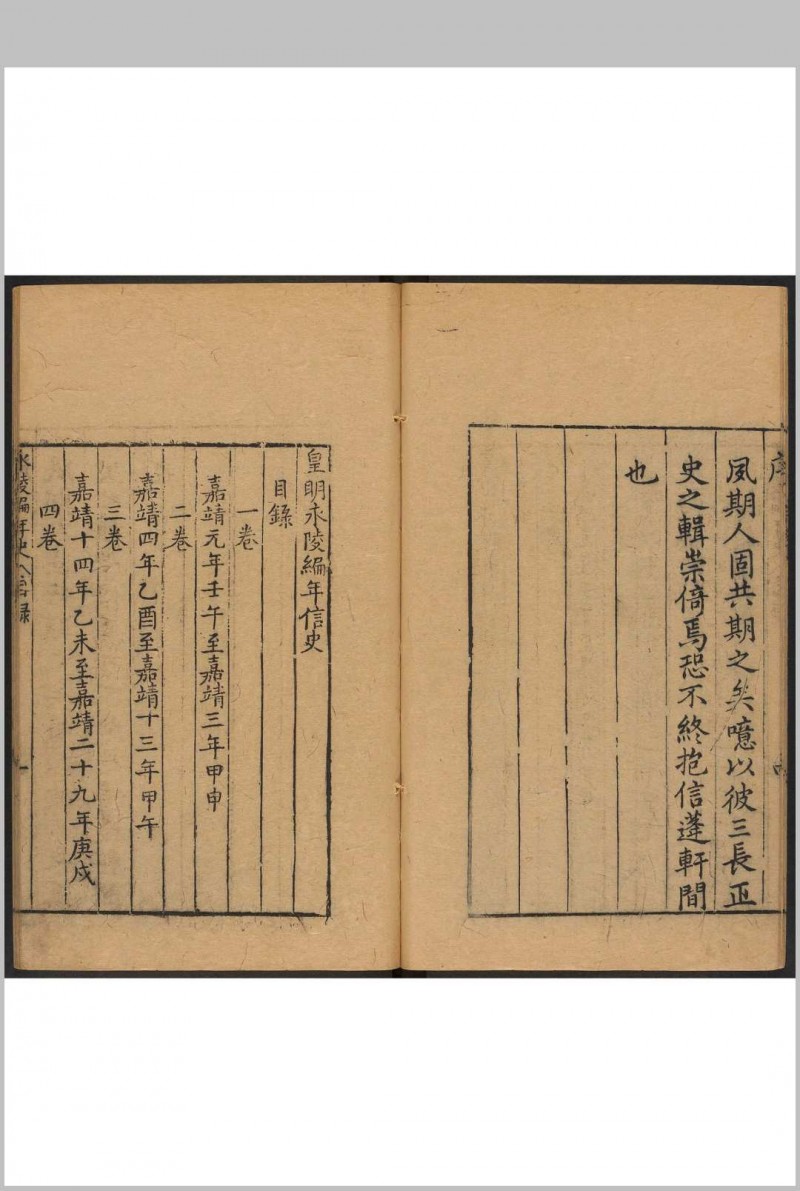 序
夙期人固共期之矣噫以彼三長正
史之輯崇倚焉恐不終抱信蓬軒間
也
皇明永陵編年信史
目錄
一卷
嘉靖元年壬午至嘉靖三年甲申
二卷
嘉靖四年乙酉至嘉靖十三年甲午
三卷
嘉靖十四年乙未至嘉靖二十九年庚戍
四卷
永陵編年史 目録
一